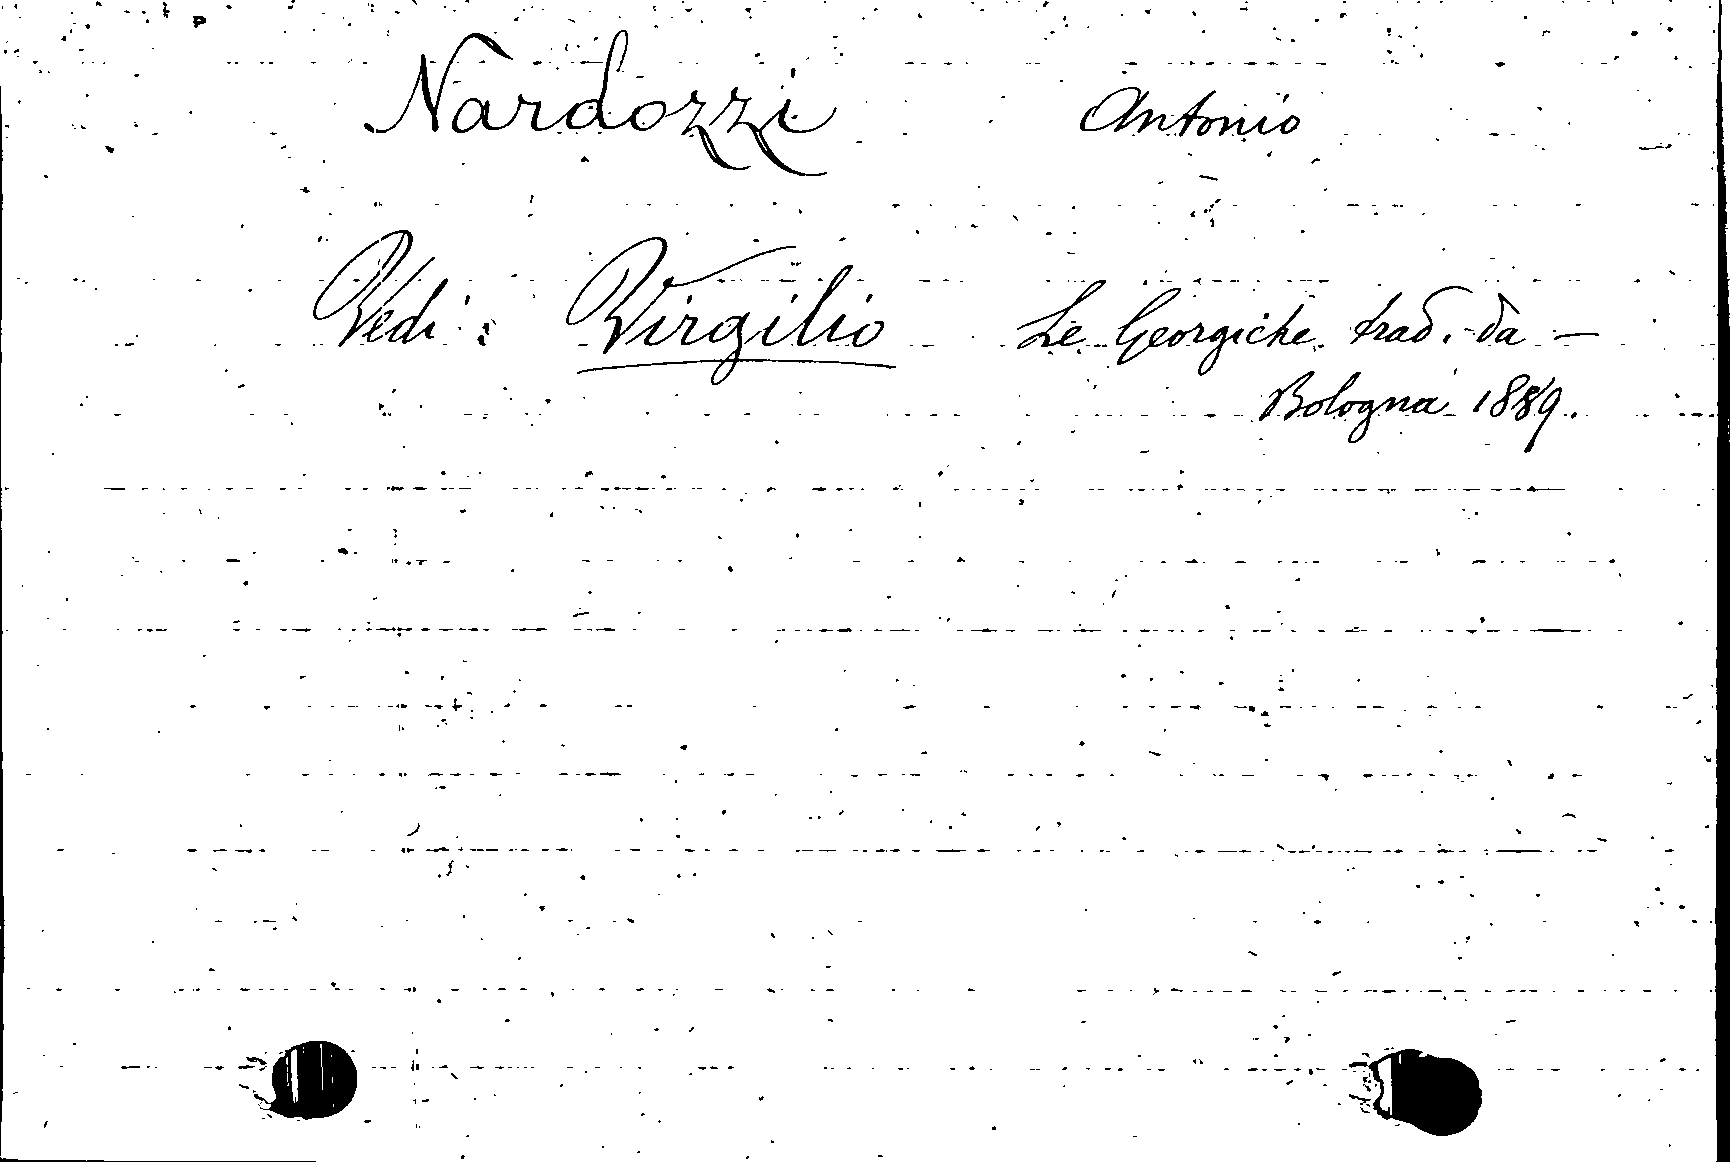 Nardozzi Antonio
Vedi: Virgilio Le Georgiche trad. da —
Bologna 1889.